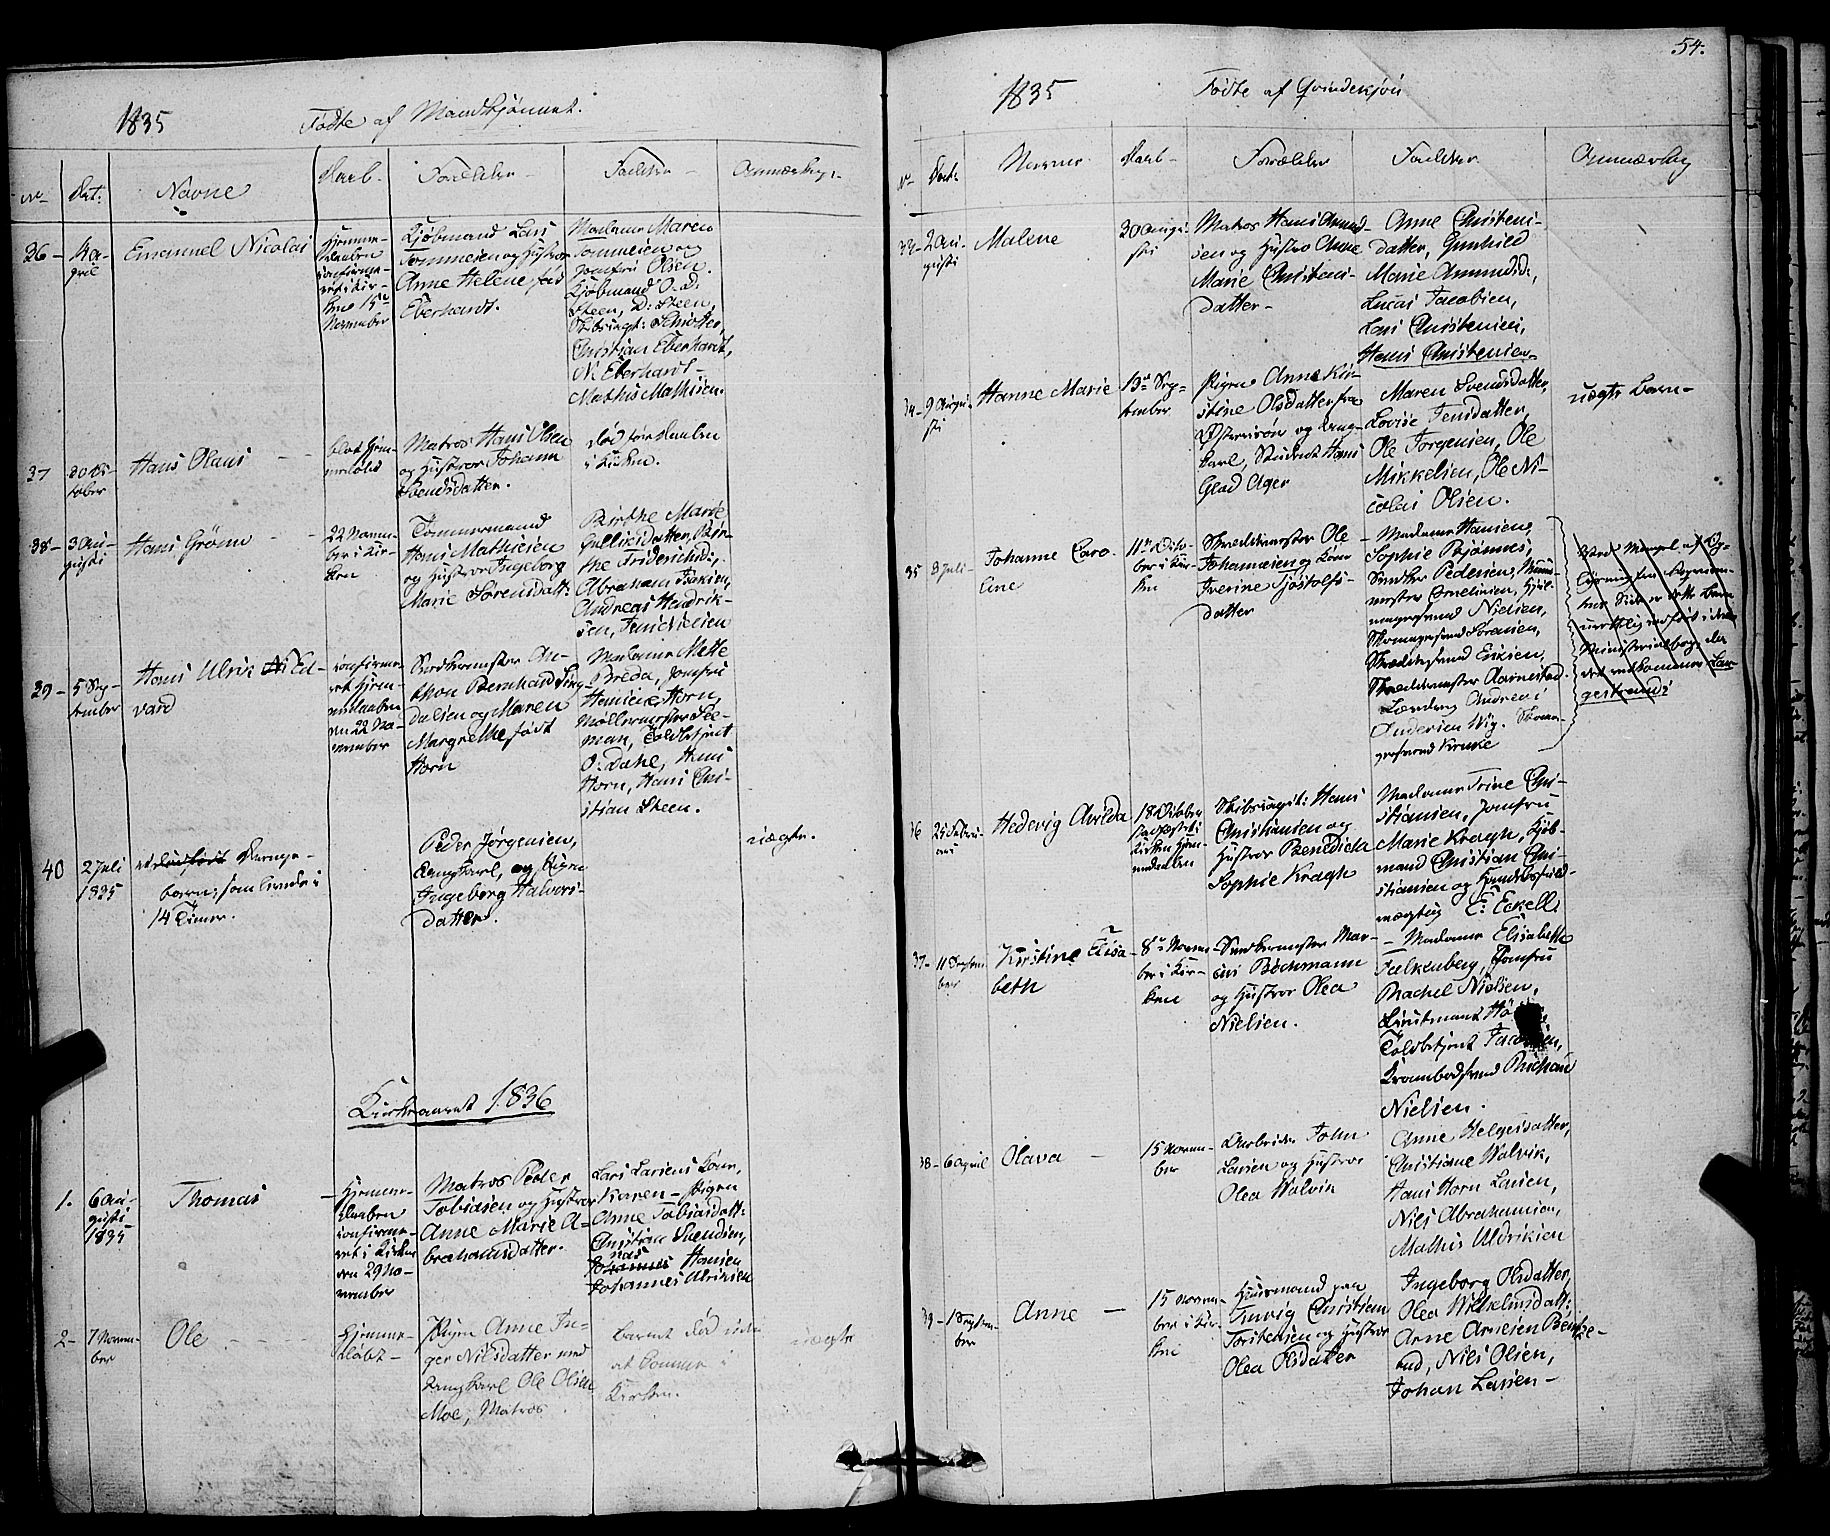 1835
Fødte af Mandkjønnet.
No
Dat:
Navne
Daab-
Forældre-
Faddre-
Anmærkng:
36-
14 A-
pril
Emanuel Nicolai
Hjemme-
daaben
confirme-
ret i Kir-
ken 15de
November
Kjøbmand Lars
Tommesen og Hustroe
Anne Helene, fød
Eberhardt.
Madame Maren
Tommesen og
Jomfru Olsen.
Kjøbmand O. D.
Steen, D: Steen,
Skibscapt: Schiøtter,
Christian Eberhardt,
N. Eberhardt-
Mathis Mathisen.
37
20 Oc-
tober
Hans Olaus
blot hjem-
medøbt
Matros Hans Olsen
og Hustroe Johanne
Svendsdatter.
død før daaben
i Kirken.
38-
3 Au-
gusti
Hans Grønn
22 Novem-
ber i Kir-
ken
Tømmermand
Hans Mathiesen
og Hustroe Ingeborg
Marie Sørensdatt:
Birthe Marie
Gullicsdatter, Bir-
the Friderichsd:,
Abraham Isaksen,
Andreas Hendrik-
sen, Jens Nielsen
39-
5 Sep-
tember
Hans Ulrik Ed-
vard
confirme-
ret hjem-
medaaben
den 22 No-
vember
Snedkermester An-
thon Bernhard Ling-
dalsen og Maren
Margrethe, født
Horn
Madame Mette
Breda, Jomfru
Henricke Horn,
Møllermester See-
man, Toldbetjent
O: Dahl, Hans
Horn, Hans Chri-
stian Steen.
40
2 Juli
1835
Drenge-
barn, som levede i
14 Timer.
Peder Jørgensen,
Ungkarl, og Pigen
Ingeborg Halvors-
datter
uægte.
Kirkeaaret 1836
1.
6 Au-
gusti
1835
Thomas
Hjemme-
daaben
confirme-
ret i Kirken
den 29 No-
vember
Matros Peder
Tobiasen og Hustroe
Anne Marie A-
brahamsdatter.
Lars Larsens Kone,
Karen- Pigen
Anne Tobiasdatt:
Christian Svendsen,
Johannes Hansen
Johannes Ulriksen
2-
7 Novem-
ber
Ole
Hjemme-
døbt-
Pigen Anne In-
ger Nilsdatter med
Ungkarl Ole Olsen
Moe, Matros
Barnet død uden
at komme i
Kirken.
uægte
54.
1835
Fødte af Qvindekjøn
No
Dat:
Navne
Daab-
Forældre
Faddre
Anmærkng
33-
2 Au-
gusti
Malene
30 Augu-
sti
Matros Hans Amund-
sen og Hustroe Anne
Marie Christens-
datter-
Anne Christens-
datter, Gunhild
Marie Amundsd:,
Lucas Jacobsen,
Lars Christensen,
Hans Christensen
34-
9 Augu-
sti
Hanne Marie
13de Sep-
tember
Pigen Anne Kir-
stine Olsdatter fra
Østerrisøer og Ung-
karl, Student Hans
Glad Ager
Maren Svendsdatter,
Lovise Jensdatter,
Ole Jørgensen, Ole
Mikkelsen, Ole Ni-
colai Olsen.
uægte Barn-
35
3 Juli-
Johanne Caro-
line
11te Octo-
ber i Kir-
ken
Skreddermester Ole
Johannesen og Kone
Iverine Sjøstolfs-
datter
Madame Hansen,
Sophie Bjønnes,
Snedker Pedersen,
mester Cornelius,
Nielsen,
Skomagersvend Sørensen,
Skreddersvend Eriksen,
Skreddermester Aarnestad.
Andreas
Andersen Wig. Skoma-
gersvend Krukke
dette Barn
urettelig indført i denne
Ministerialbog, da
det vedkommer Lan-
gesund
36
25 Febru-
ari
Hedevig Avilda
18 October
i
Kirken hjem-
medaaben
Skibscapit: Hans
Christiansen og
Hustroe Benedicta
Sophie Kragh
Madame Trine Chri-
stiansen, Jomfru
Marie Kragh, Kjøb-
mand Christian Chri-
stiansen og Handelsfuld-
mægtig C: Eckell
37-
11 Septem-
ber
Kirstine Elisa-
beth
8de Novem-
ber i Kir-
ken
Snedkermester Mar-
cus Bochmann
og Hustroe Olea
Nielsen.
Madame Elisabeth
Falkenberg, Jomfru
Rachel Nielsen,
Lieutenant
Toldbetjent Jacobsen,
Krambodsvend Richard
Nielsen.
38-
6 April
Olava
15 Novem-
ber
Arbeider John
Larsen og Hustroe
Olea Walvik
Anne Helgesdatter,
Christiane Walvik,
Hans Horn Larsen,
Niels Abrahamsen,
Mathis Uldriksen
39-
1 Septem-
ber
Anne
15 Novem-
ber i Kir-
ken
Huusmand paa
Christian
Torstensen og Hustroe
Olea Olsdatter
Ingeborg Olsdatter,
Olea Wilhelmsdatt:
Arne Arnesen
Niels Olsen,
Johan Larsen-